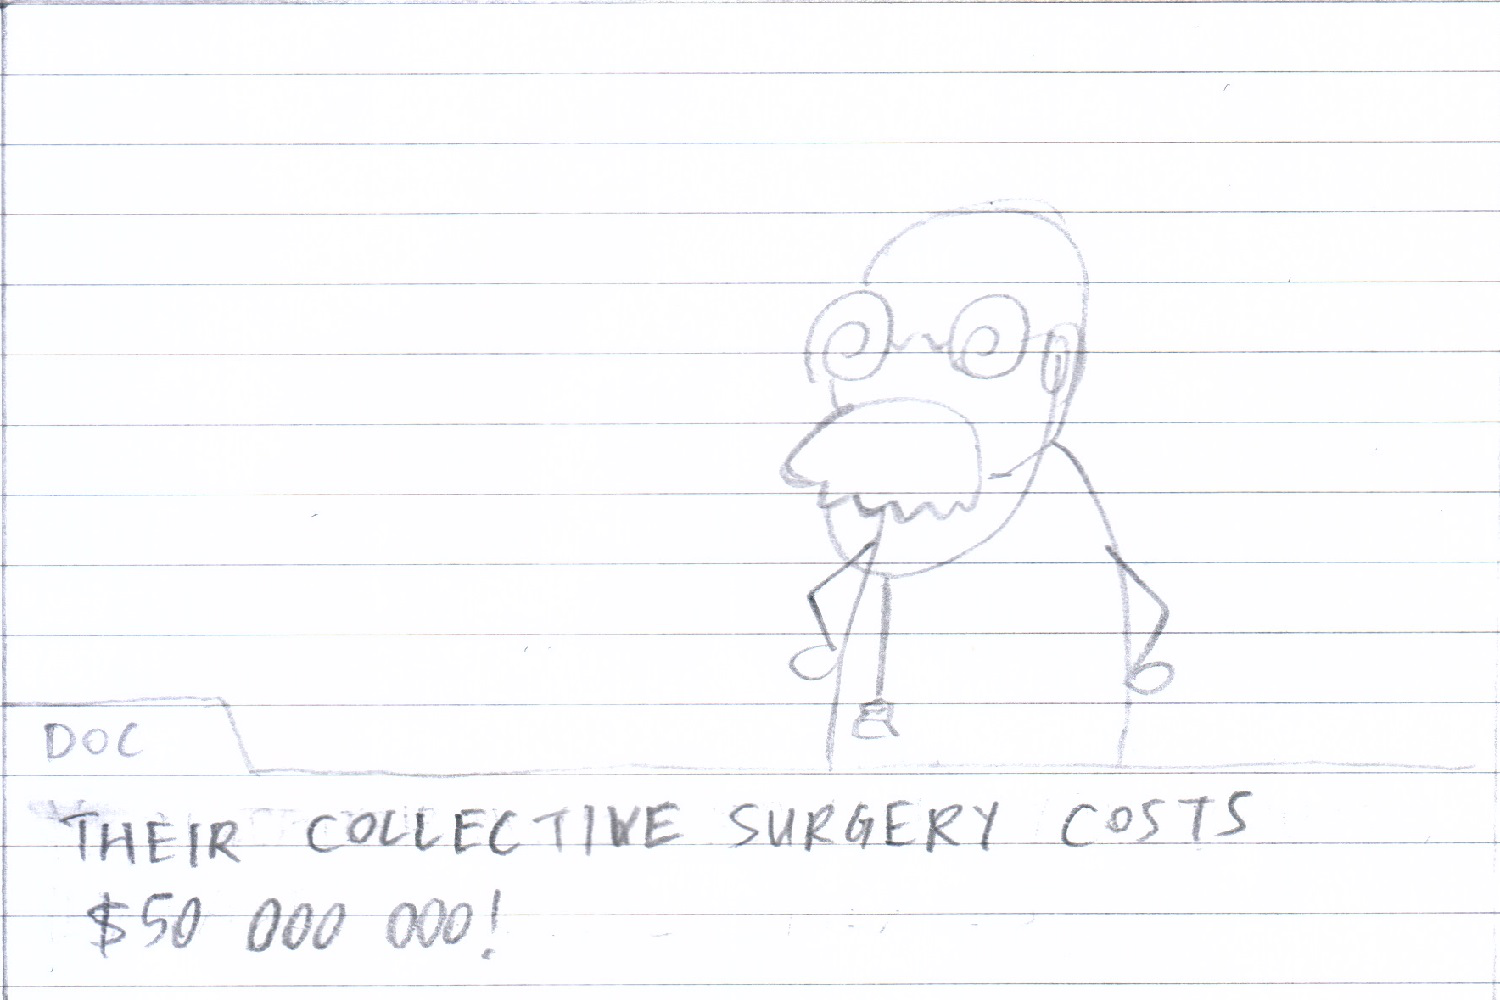 DOC
THEIR COLLECTIVE SURGERY COSTS
$50 000 000!